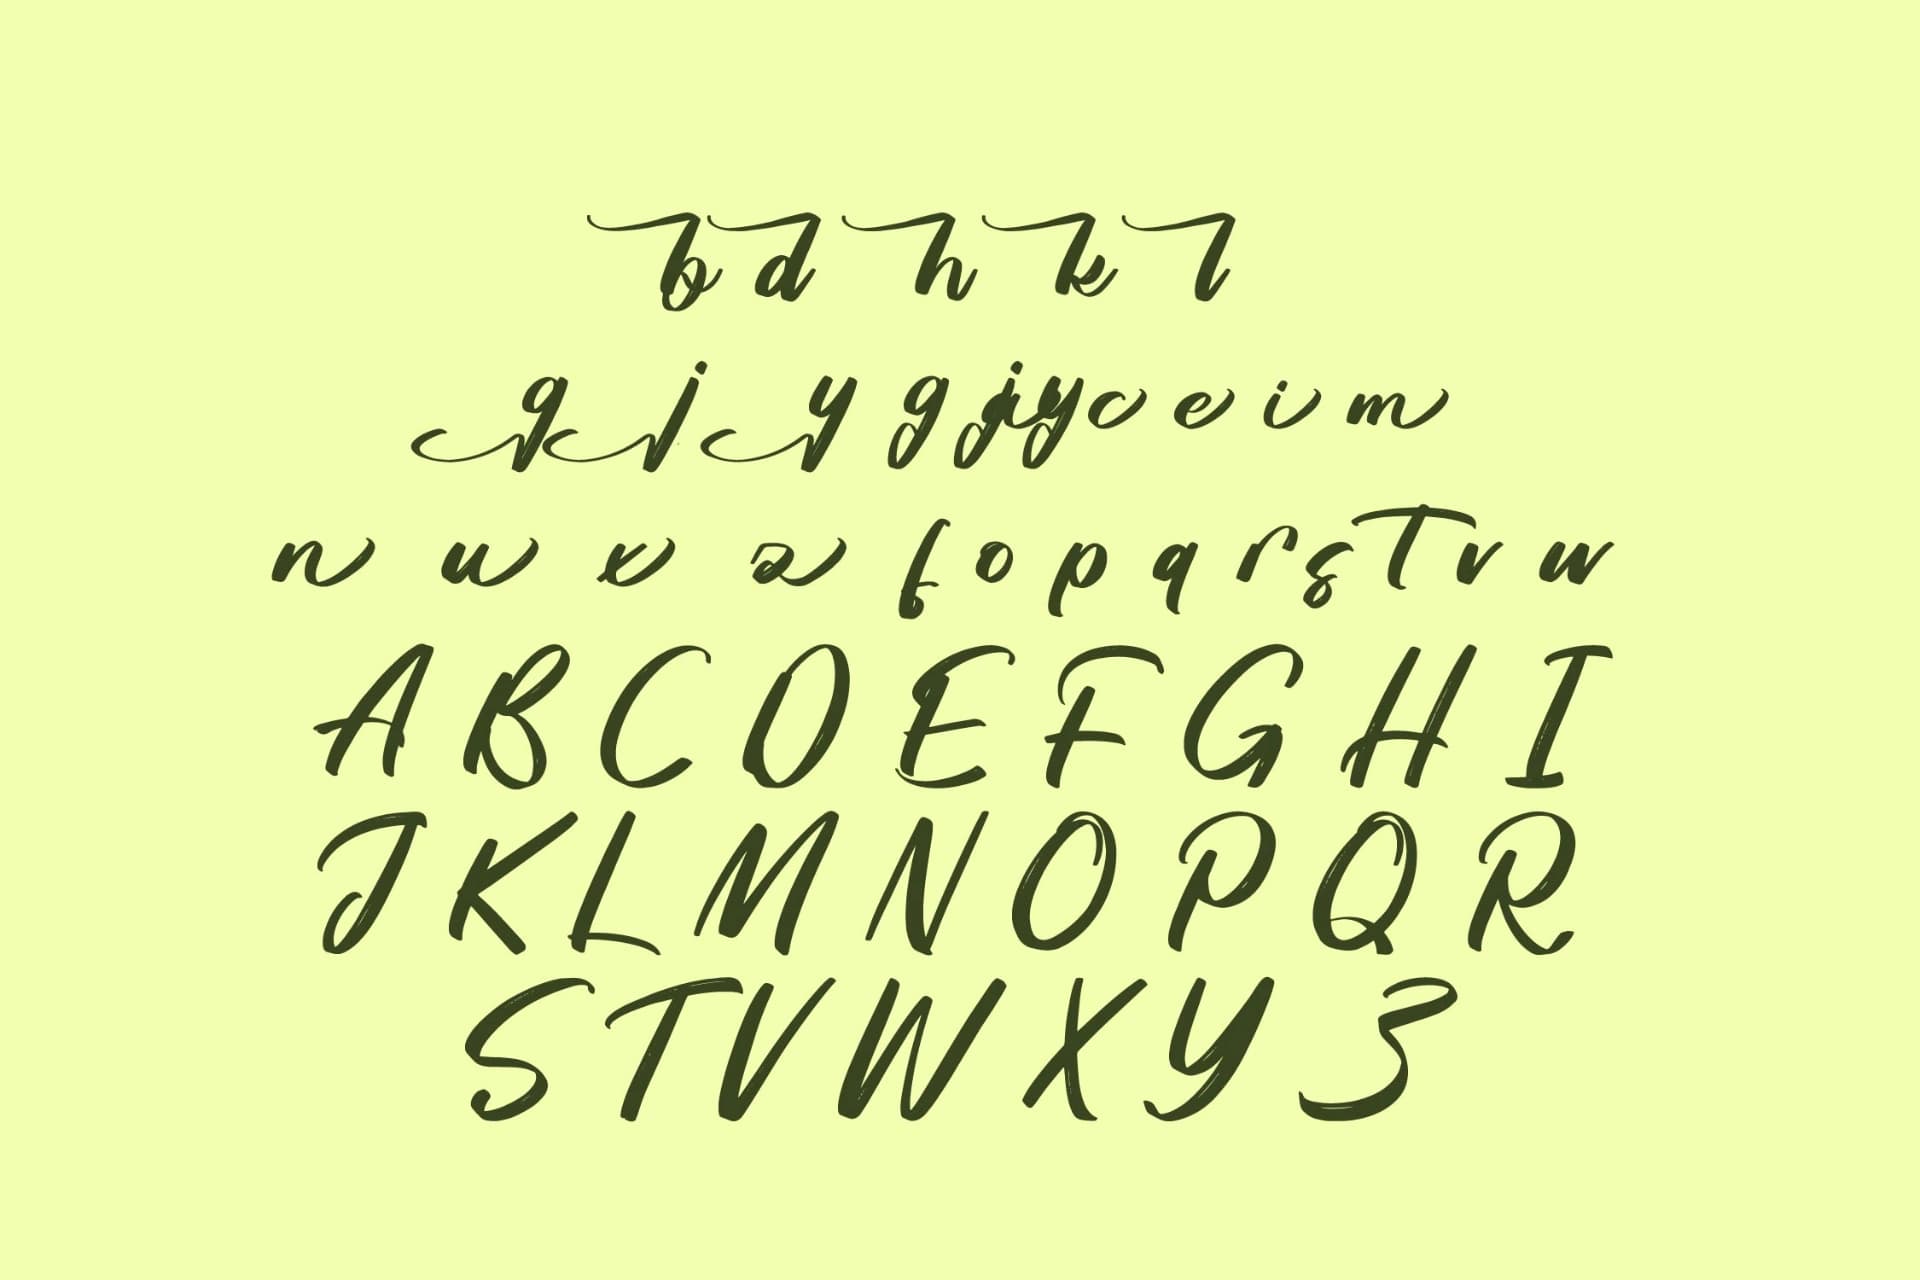 b d h k l
g j y g j a y c e i m
n u x z f o p q r s t v w
A B C D E F G H I
J K L M N O P Q R
S T V W X Y Z